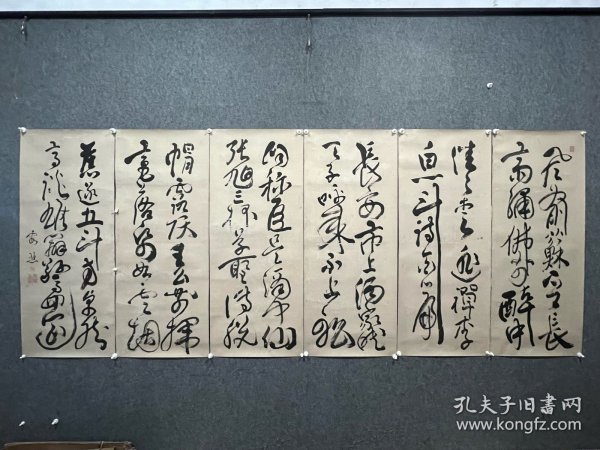 風前蘇晉長
齋繡佛前醉中
往往愛逃禪李
白一斗詩百篇
長安市上酒家眠
天子呼來不上船
自稱臣是酒中仙
張旭三杯草聖傳脫
帽露頂王公前揮
毫落紙如雲烟
焦遂五斗方卓然
高談雄辯驚四筵
孔夫子旧書网
www.kongfz.com